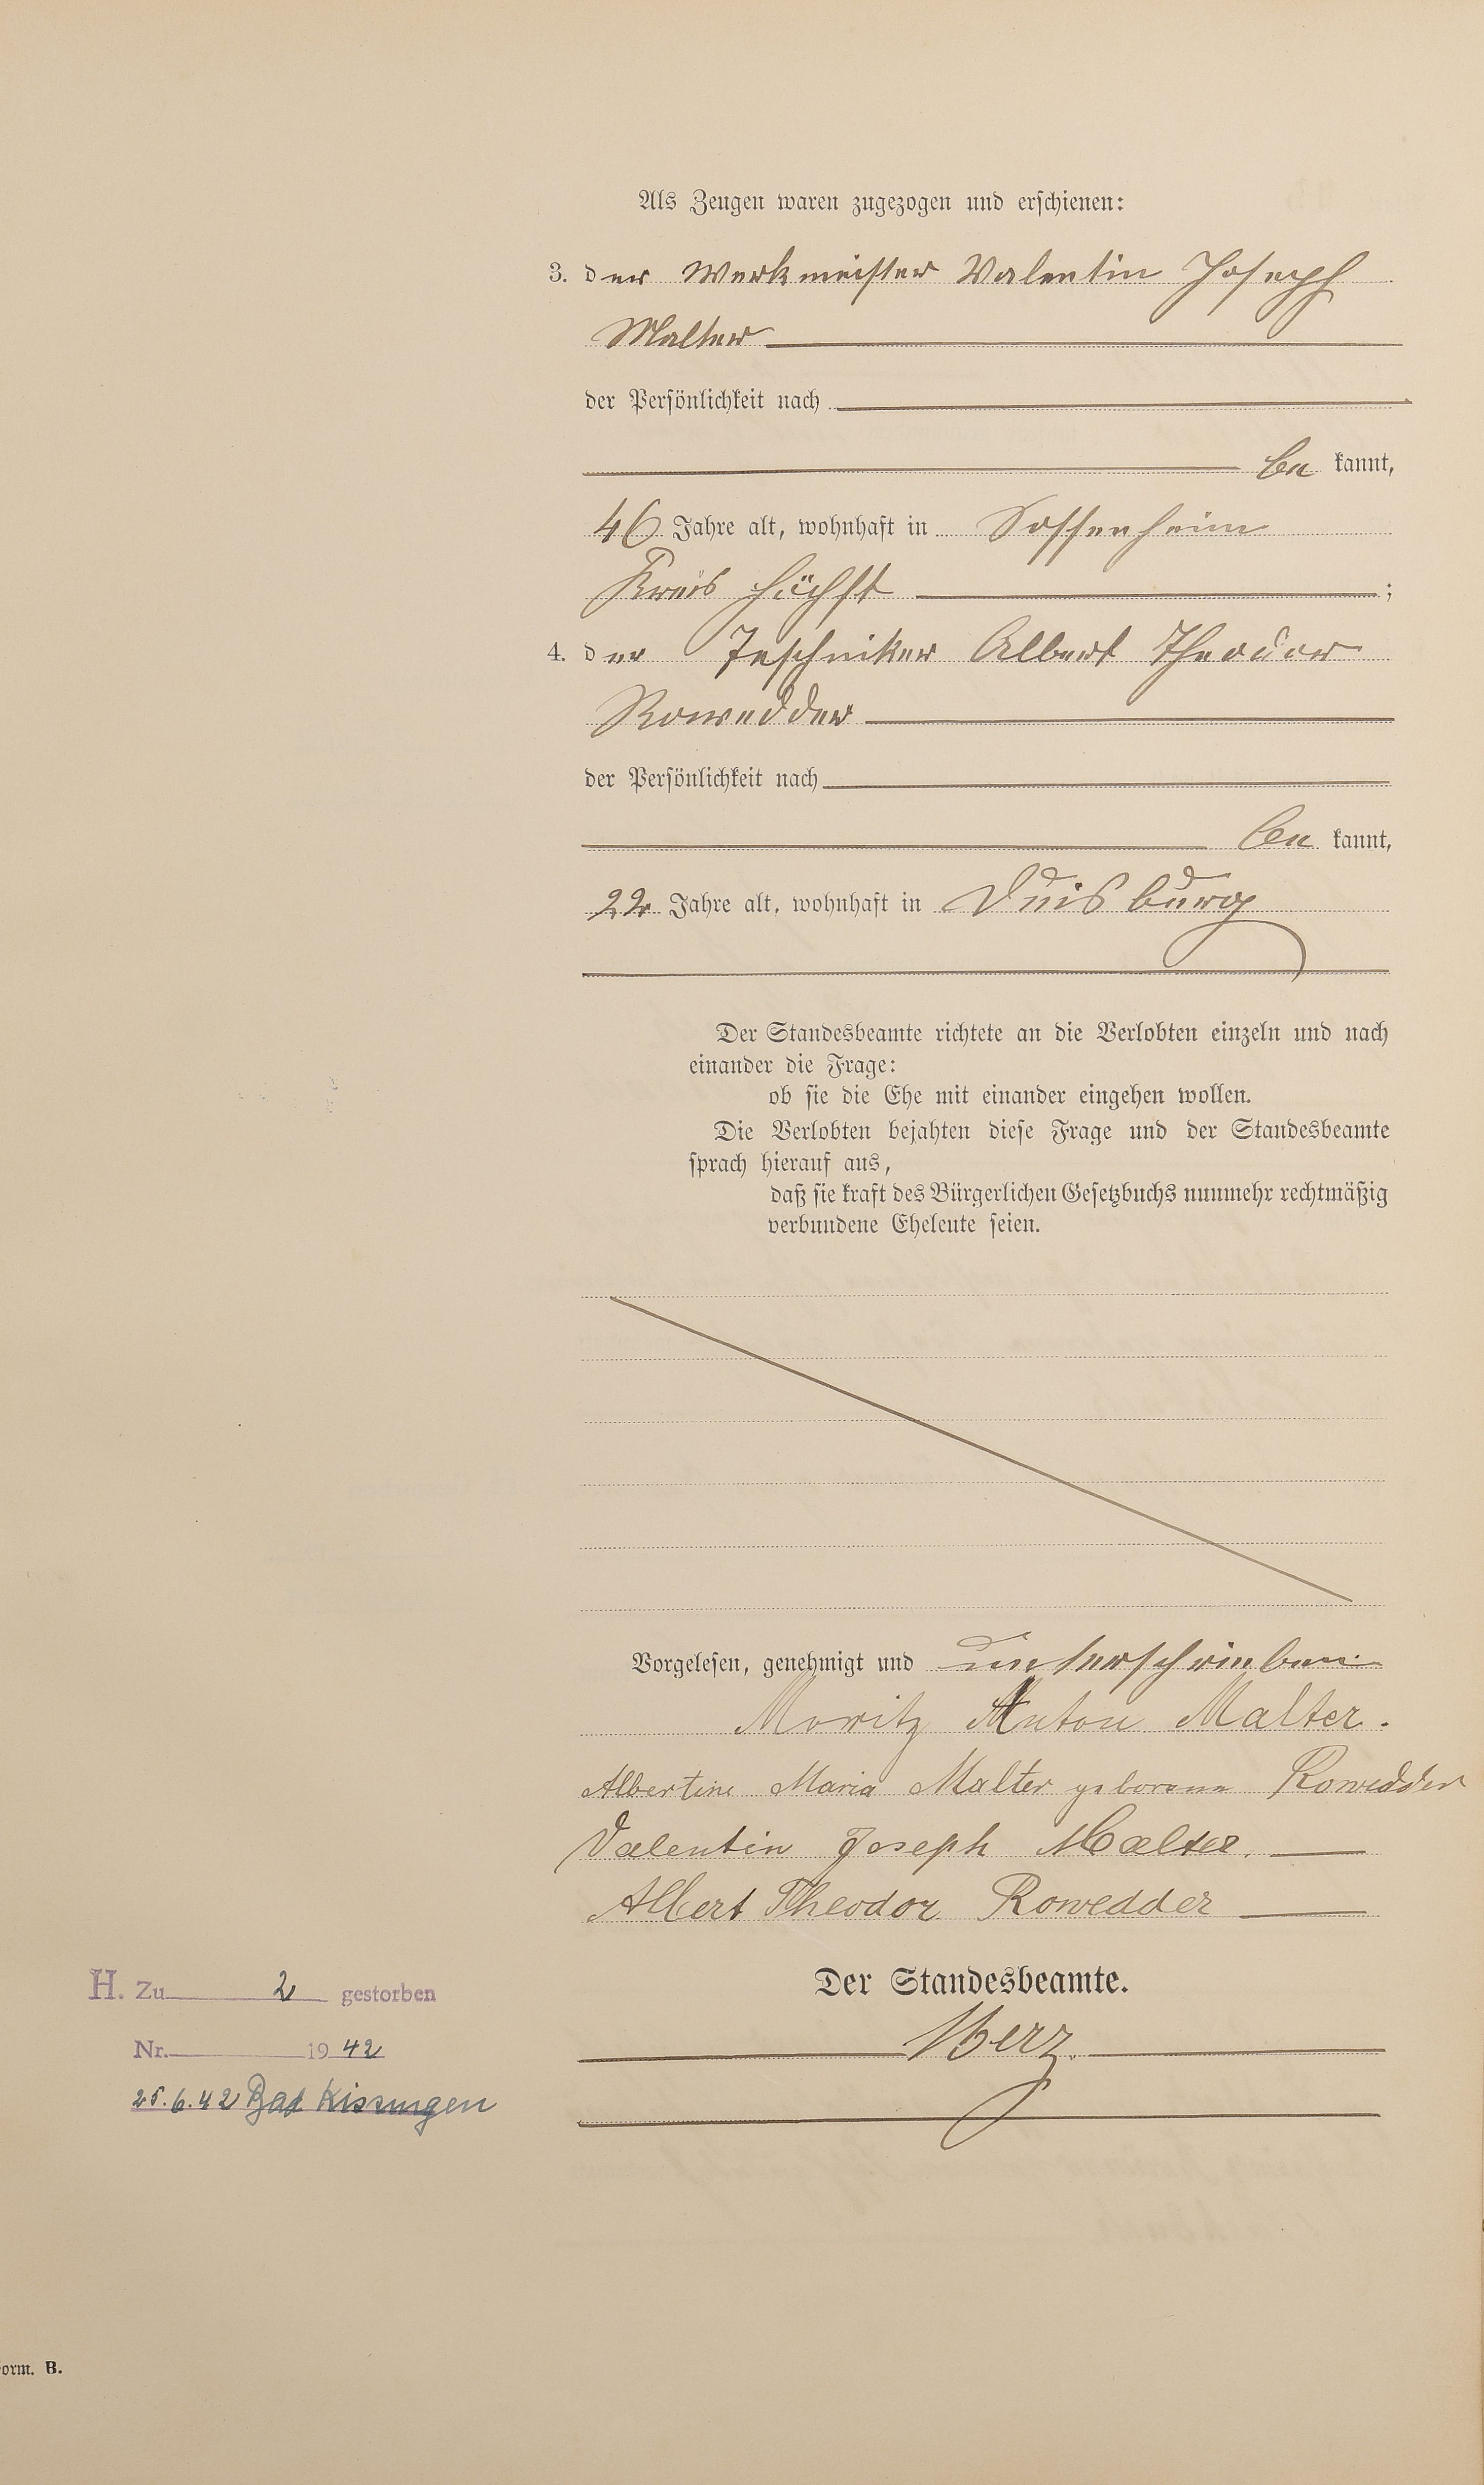 Als Zeugen waren zugezogen und erschienen:
3. der Werkmeister Valentin Joseph
Malter
der Persönlichkeit nach
be kannt,
46 Jahre alt, wohnhaft in Sossenheim
Kreis Höchst ;
4. der Techniker Albert Theodor
Rowedder
der Persönlichkeit nach
be kannt,
22 Jahre alt, wohnhaft in Duisburg
Der Standesbeamte richtete an die Verlobten einzeln und nach
einander die Frage:
ob sie die Ehe mit einander eingehen wollen.
Die Verlobten bejahten diese Frage und der Standesbeamte
sprach hierauf aus,
daß sie kraft des Bürgerlichen Gesetzbuchs nunmehr rechtmäßig
verbundene Eheleute seien.
Vorgelesen, genehmigt und unterschrieben
Moritz Anton Malter.
Albertine Maria Malter geborene Rowedder
Valentin Joseph Malter.
Albert Theodor Rowedder
Der Standesbeamte.
H. Zu 2 gestorben
Nr. 19 42
25.6.42 Bad Kissingen
orm. B.